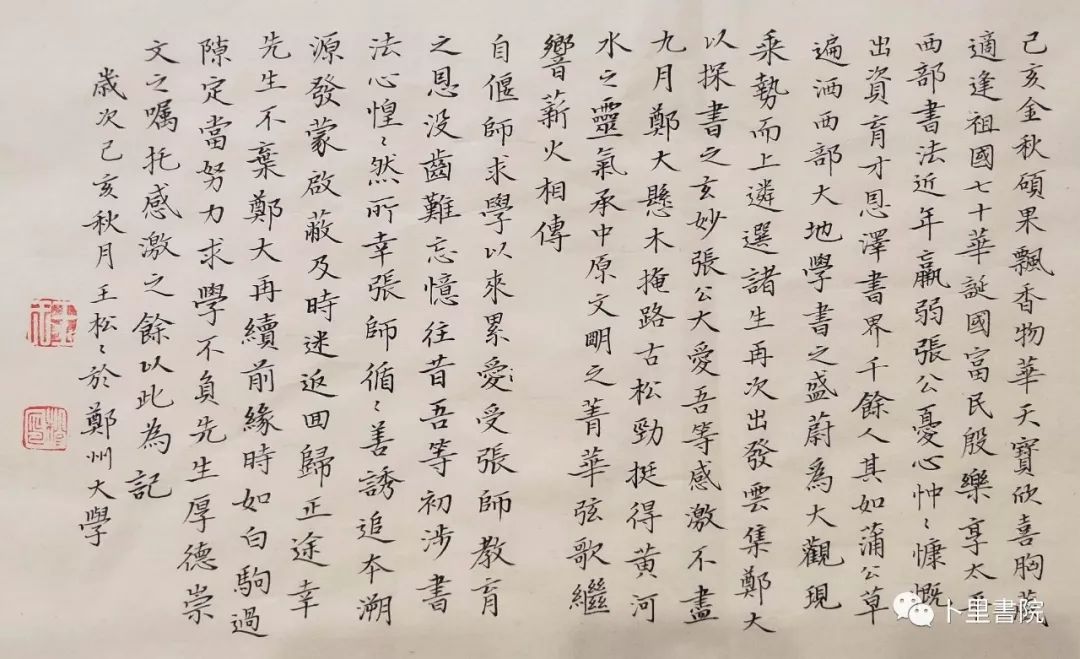 己亥金秋碩果飄香物華天寶欣喜胸藏
適逢祖國七十華誕國富民殷樂享太平
西部書法近年羸弱張公憂心忡〻慷慨
出資育才恩澤書界千餘人其如蒲公草
遍洒西部大地學書之盛蔚為大觀現
乘勢而上遴選諸生再次出發雲集鄭大
以探書之玄妙張公大愛吾等感激不盡
九月鄭大懸木掩路古松勁挺得黃河
水之靈氣承中原文明之菁華弦歌繼
響薪火相傳
自偃師求學以來累愛受張師教育
之恩没齒難忘憶往昔吾等初涉書
法心惶〻然所幸張師循〻善誘追本溯
源發蒙啟蔽及時迷返回歸正途幸
先生不棄鄭大再續前緣時如白駒過
隙定當努力求學不負先生厚德崇
文之囑托感激之餘以此為記
歲次己亥秋月王松〻於鄭州大學
卜里書院